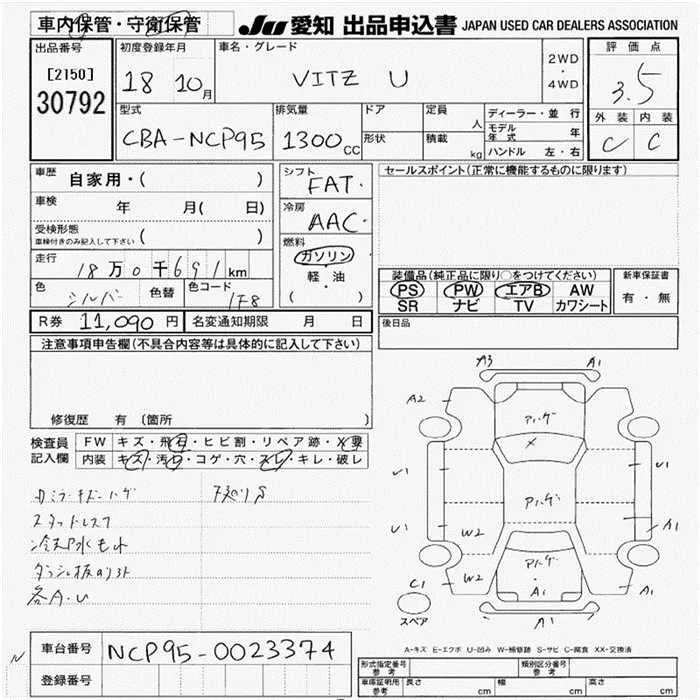 車内保管・守衛保管
JU 愛知 出品申込書 JAPAN USED CAR DEALERS ASSOCIATION
出品番号
[2150]
30792
初度登録年月
18 10月
車名・グレード
VITZ U
2WD
・
4WD
評価点
3.5
外装 内装
C C
型式
CBA-NCP95
排気量
1300cc
ドア
形状
定員
人
積載
kg
ディーラー・並行
モデル年式 年
ハンドル 左・右
車歴
自家用・( )
車検
年 月( 日)
受検形態
車検付きのみ記入して下さい ( )
走行
18万0千691km
色
シルバー
色替
色コード
1F8
シフト
FAT・
冷房
AAC・
燃料
ガソリン
・
軽・油
( )
セールスポイント(正常に機能するものに限ります)
装備品(純正品に限り○をつけてください)
PS PW エアB AW
SR ナビ TV カワシート
新車保証書
有・無
後日品
R券 11,090円
名変通知期限 月 日
注意事項申告欄(不具合内容等は具体的に記入して下さい)
修復歴 有 (箇所 )
検査員
記入欄
FW キズ・飛石・ヒビ割・リペア跡・X要
内装 キズ・汚れ・コゲ・穴・スレ・キレ・破レ
スタッドレス
冷却水もれ
各A.U
A3 A1
A2
U1 U1
U1 A1
W2
W2
A1
A1
C1
スペア
A1
A-キズ E-エクボ U-凹み W-補修跡 S-サビ C-腐食 XX-交換済
車台番号
NCP95-0023374
登録番号
N
形式指定番号
参考
類別区分番号
参考
車庫証明用
参考
長さ cm 幅 cm 高さ cm